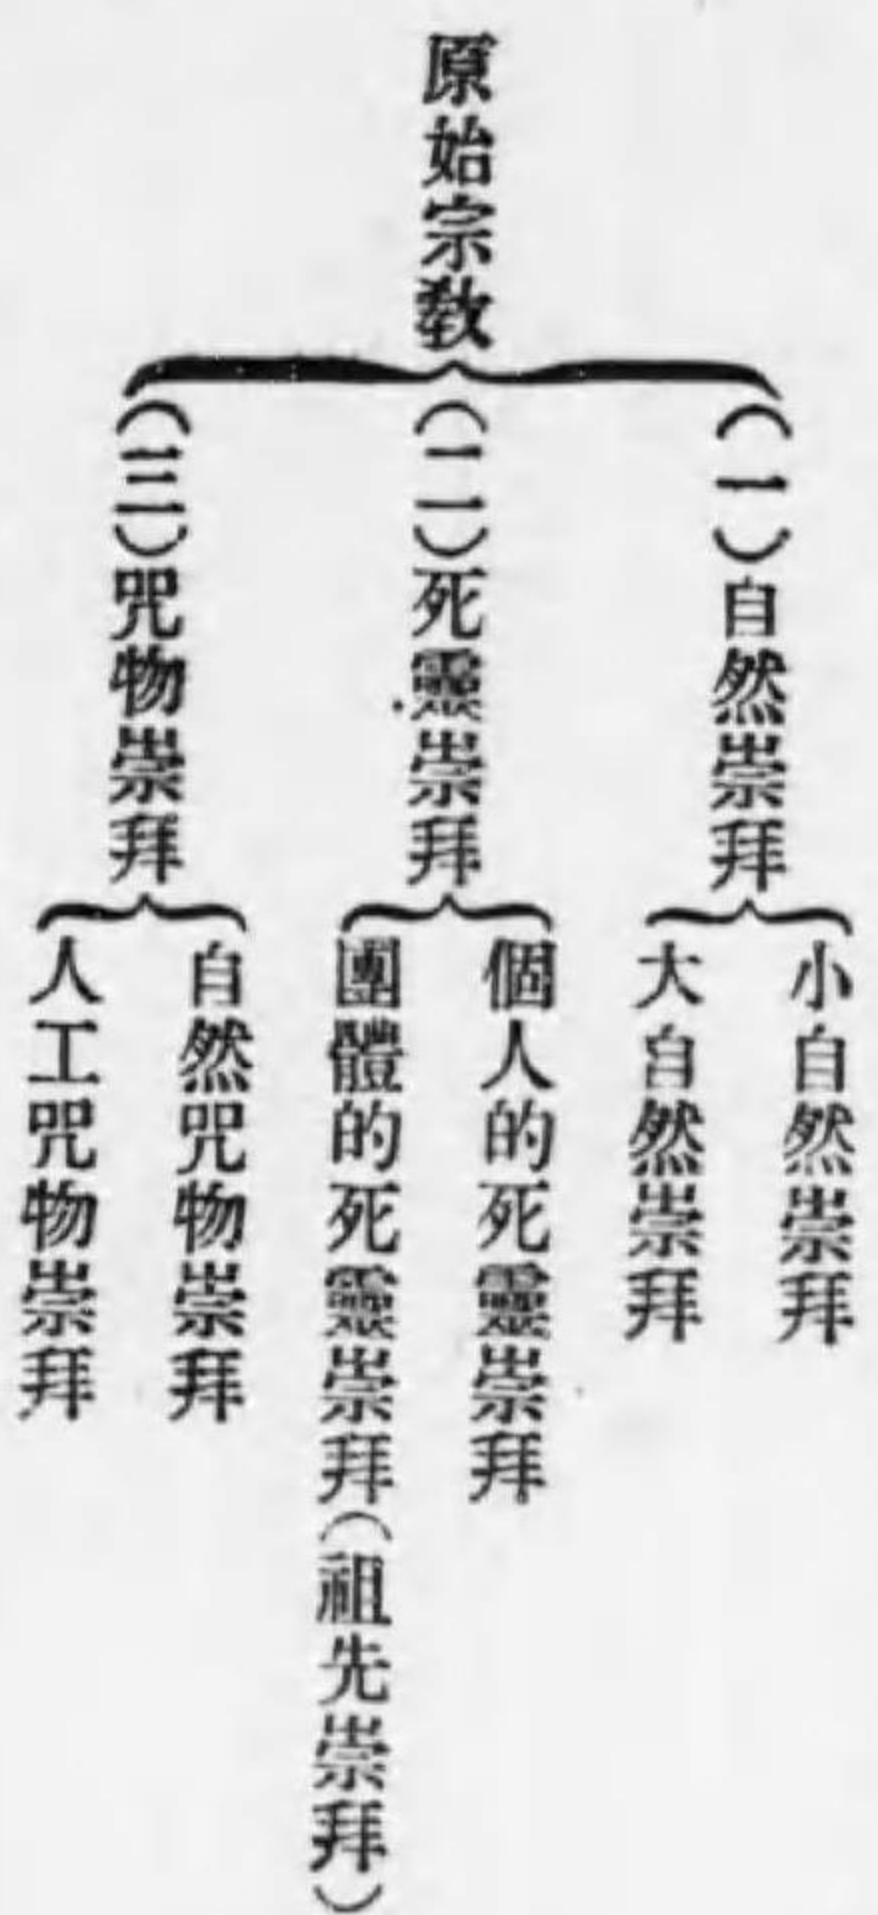 原始宗教
(一)自然崇拜
小自然崇拜
大自然崇拜
(二)死靈崇拜
個人的死靈崇拜
團體的死靈崇拜(祖先崇拜)
(三)咒物崇拜
自然咒物崇拜
人工咒物崇拜